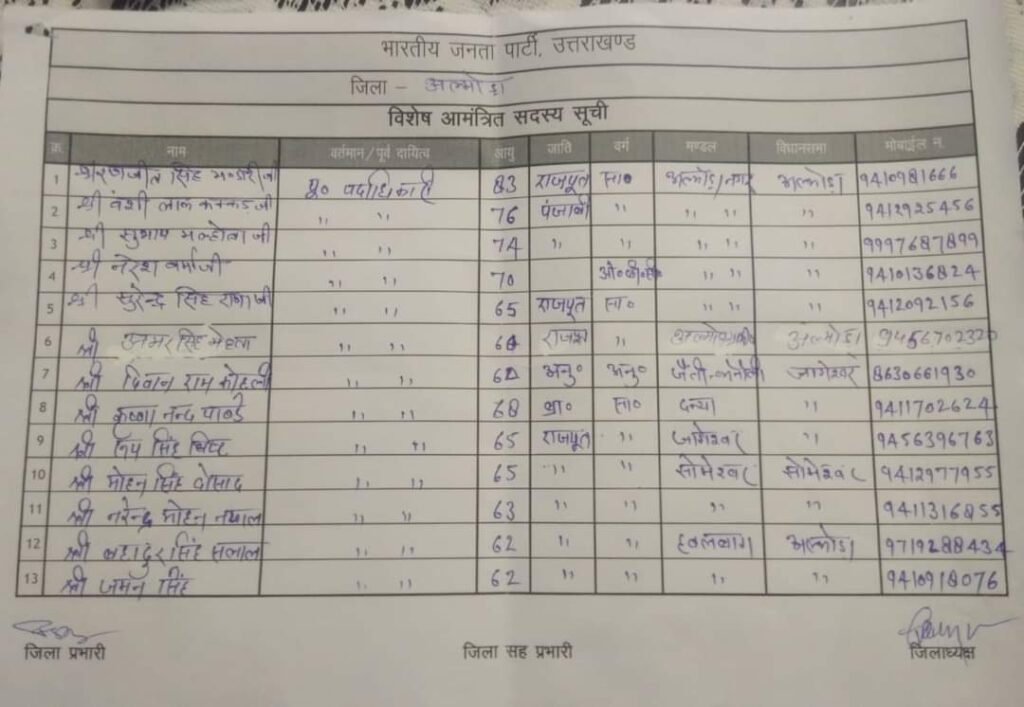 भारतीय जनता पार्टी, उत्तराखण्ड
जिला – अल्मोड़ा
विशेष आमंत्रित सदस्य सूची
क्र. नाम वर्तमान/पूर्व दायित्व आयु जाति वर्ग मण्डल विधानसभा मोबाईल न.
1 सिंह भण्डारी जी पू० पदाधिकारी 83 राजपूत सा० अल्मोड़ा नगर अल्मोड़ा 9410981666
2 श्री वंशी लाल कक्कड़ जी " " 76 पंजाबी " " " " 9412925456
3 श्री सुभाष मल्होत्रा जी " " 74 " " " " " 9997687899
4 श्री नरेश वर्मा जी " " 70 ओ०बी०सी० " " " 9410136824
5 श्री सुरेन्द्र सिंह राणा जी " " 65 राजपूत सा० " " " 9412092156
6 श्री अमर सिंह मेहता " " 64 " अल्मोड़ा 9456702320
7 श्री दिवान राम कोहली " " अनु० अनु० जैंती जागेश्वर 8630661930
8 श्री कृष्णा नन्द पाण्डे " " 68 ब्रा० सा० दन्या " 9411702624
9 श्री सिंह बिष्ट " " 65 राजपूत " जागेश्वर " 9456396763
10 श्री मोहन सिंह दोसाद " " 65 " " सोमेश्वर सोमेश्वर 9412977955
11 श्री नरेन्द्र मोहन नयाल " " 63 " " " " 9411316855
12 श्री बहादुर सिंह " " 62 " " हवलबाग अल्मोड़ा 9719288434
13 श्री जमन सिंह " " 62 " " " " 9410918076
जिला प्रभारी जिला सह प्रभारी जिलाध्यक्ष